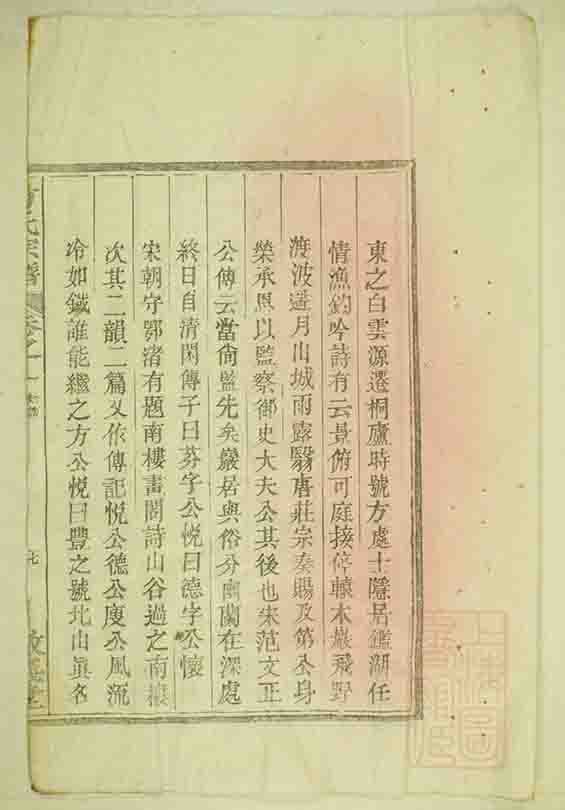 東之白雲源遷桐廬時號方處士隱居鑑湖任
情漁釣吟詩有云景俯可庭接停轅木巖飛野
渡波遥月出城雨露翳唐莊宗奏賜及第公身
榮承恩以監察御史大夫公其後也朱范文正
公傳云當尙監先矣巖居與俗分幽蘭在深處
終日自清閑傳子曰芬字公悦曰德字公懷
宋朝守鄂渚有題南樓書閣詩山谷過之南樓
次其二韻二篇又作傳記悦公德公廋公風流
冷如鐵誰能繼之方公悦曰豐之號北山眞名
方氏宗譜 卷之一 七